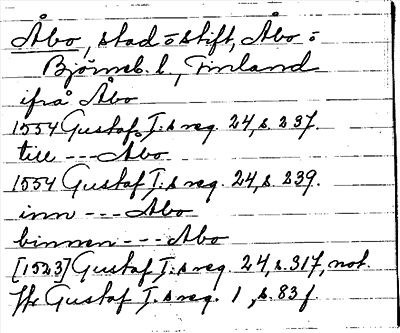 Åbo, stad o stift, Åbo o
Björneb. l., Finland
ifrå Åbo
1554 Gustaf I:s reg. 24, s. 237.
till --- Åbo
1554 Gustaf I:s reg. 24, s. 239.
inn --- Åbo
binnen --- Åbo
[1523] Gustaf I:s reg. 24, s. 317, not.
Gustaf I:s reg. 1, s. 83 f